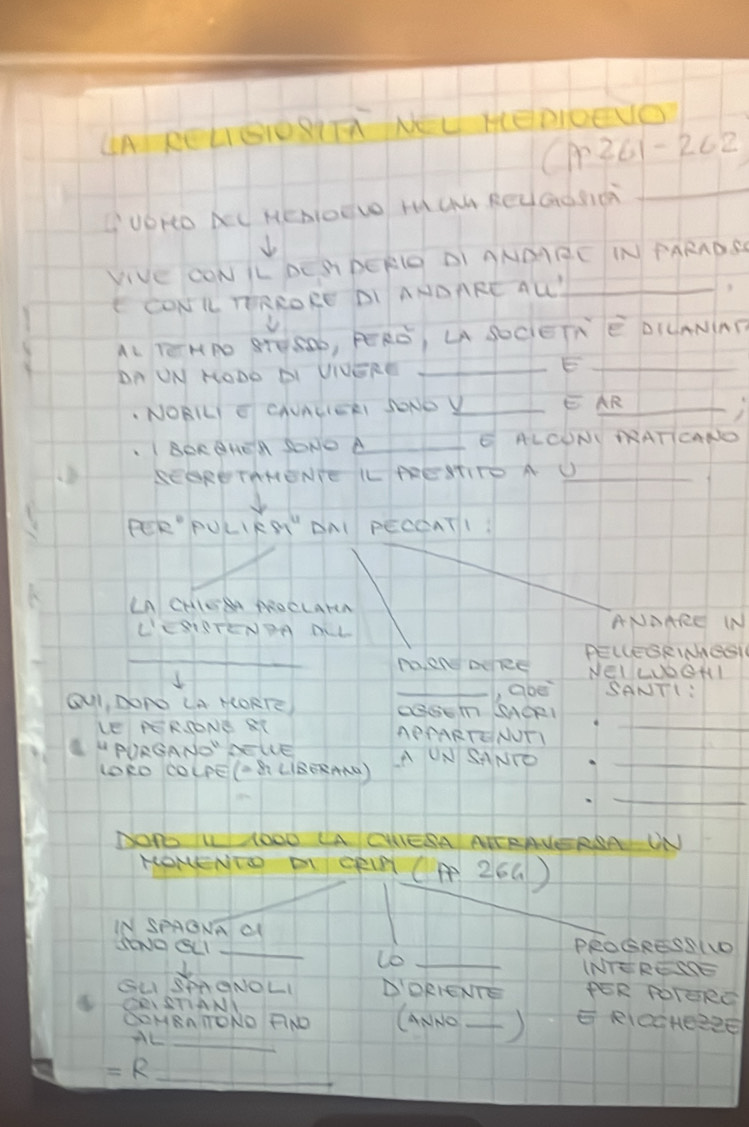 LA RELIGIOSITÀ NEL MEDIOEVO
(pp 261-262
L'UOMO DEL MEDIOEVO HA UNA RELIGIOSITÀ ______
↓
VIVE CON IL DESIDERIO DI ANDARE IN PARADISO
E CON IL TERRORE DI ANDARE ALL'______.
↓
AL TEMPO STESSO, PERÒ, LA SOCIETÀ È DILANIATA
DA UN MODO DI VIVERE ______ E ______
. NOBILI E CAVALIERI SONO V______ E AR______;
. I BORGHESI SONO A______ E ALCUNI PRATICANO
SEGRETAMENTE IL PRESTITO A U______.
↓
PER "PULIRSI" DAI PECCATI:
LA CHIESA PROCLAMA
L'ESISTENZA DEL
______
↓
QUI, DOPO LA MORTE,
LE PERSONE SI
"PURGANO" DELLE
LORO COLPE (= SI LIBERANO)
POSSEDERE
______, CIOÈ
OGGETTI SACRI
APPARTENUTI
A UN SANTO
ANDARE IN
PELLEGRINAGGIO
NEI LUOGHI
SANTI:
. ______
. ______
. ______
DOPO IL 1000 LA CHIESA ATTRAVERSA UN
MOMENTO DI CRISI (pp 264)
IN SPAGNA CI
SONO GLI ______
↓
GLI SPAGNOLI
CRISTIANI
COMBATTONO FINO
AL ______
= R ______
LO ______
D'ORIENTE
(ANNO ___)
PROGRESSIVO
INTERESSE
PER POTERE
E RICCHEZZE